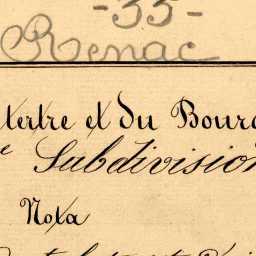 -33-
Renac
tertre et du Bourg
e Subdivision
Nota